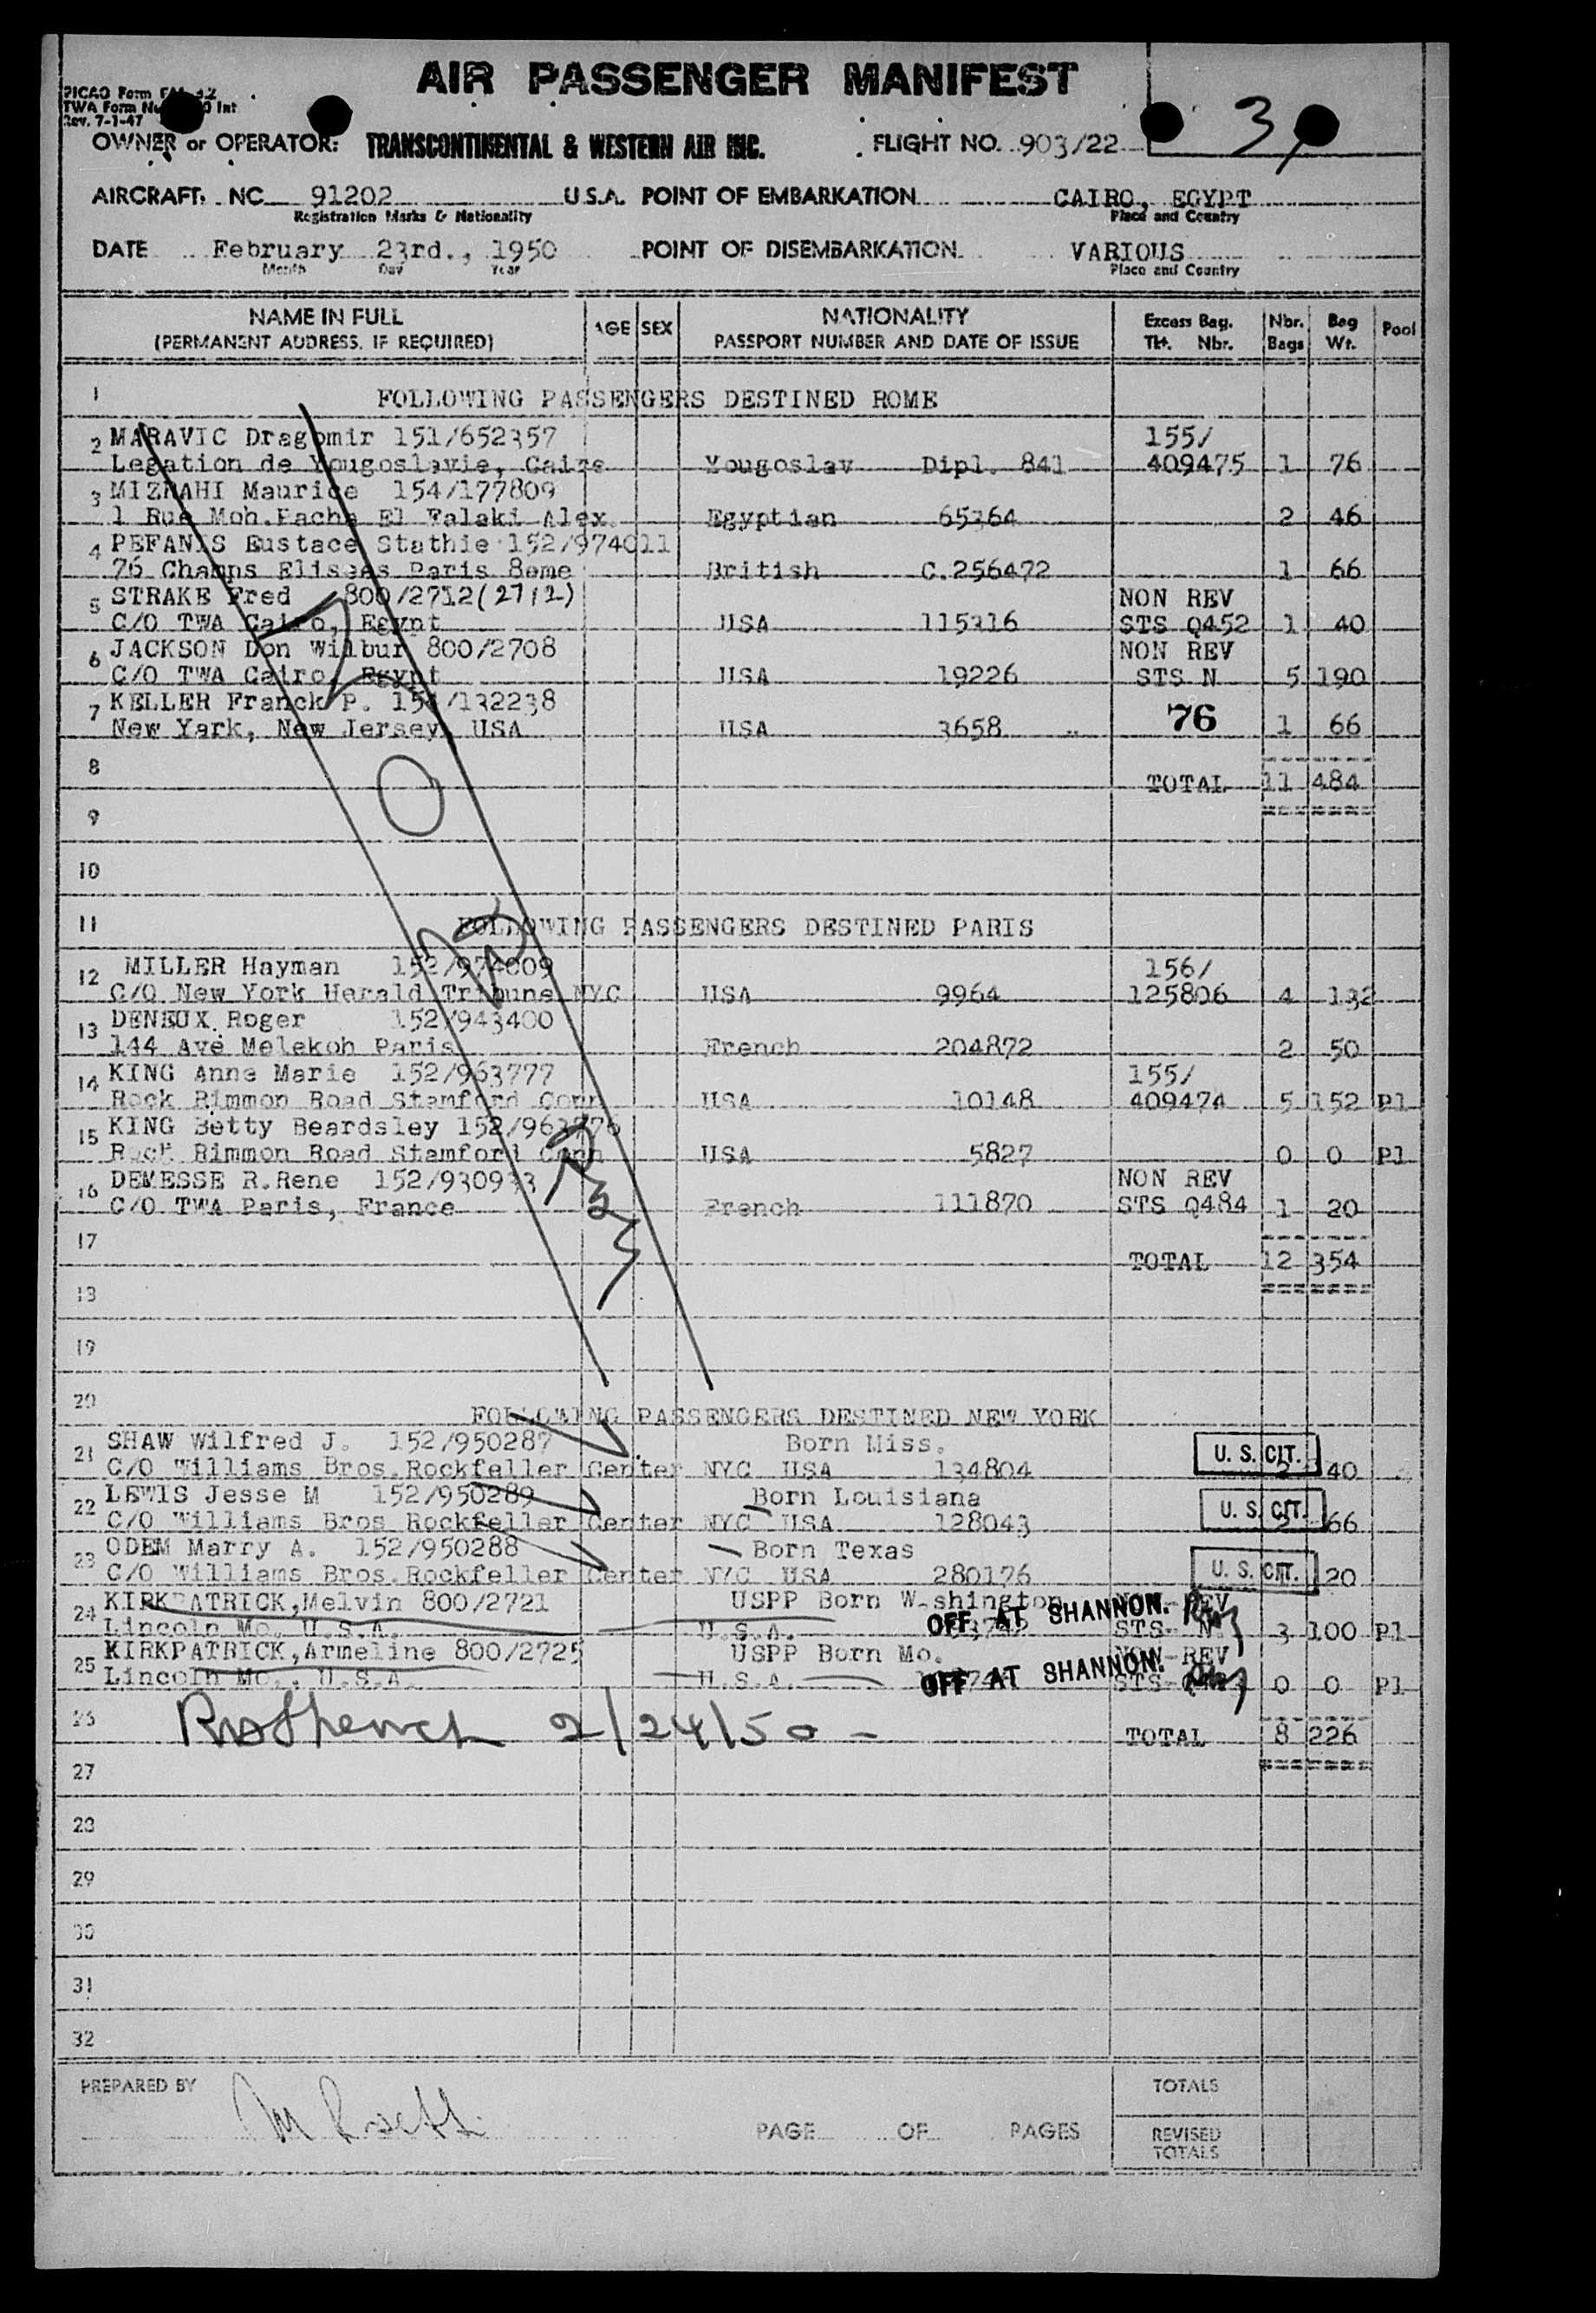 AIR PASSENGER MANIFEST
PICAO Form
TWA Form Int
Rev. 7-1-47
3
OWNER or OPERATOR: TRANSCONTINENTAL & WESTERN AIR INC. FLIGHT NO. 903/22
AIRCRAFT. NC 91202 U.S.A. POINT OF EMBARKATION CAIRO, EGYPT
Registration Marks & Nationality Place and Country
DATE February 23rd., 1950 POINT OF DISEMBARKATION VARIOUS
Month Day Year Place and Country
NAME IN FULL AGE SEX NATIONALITY Excess Bag. Nbr. Bag Pool
(PERMANENT ADDRESS, IF REQUIRED) PASSPORT NUMBER AND DATE OF ISSUE Tkt. Nbr. Bags Wt.
1 FOLLOWING PASSENGERS DESTINED ROME
2 MARAVIC Dragomir 151/652357 155/
Legation de Yougoslavie, Caire Yougoslav Dipl. 841 409475 1 76
3 MIZRAHI Maurice 154/177809
1 Rue Moh.Pacha El Falaki Alex. Egyptian 65364 2 46
4 PEFANIS Eustace Stathie 152/974011
76 Champs Elisees Paris 8eme British C.256472 1 66
5 STRAKE Fred 800/2712(2712) NON REV
C/O TWA Cairo, Egypt USA 115316 STS Q452 1 40
6 JACKSON Don Wilbur 800/2708 NON REV
C/O TWA Cairo, Egypt USA 19226 STS N 5 190
7 KELLER Franck P. 154/132238 76
New Yark, New Jersey, USA USA 3658 1 66
8 TOTAL 11 484
9
10
11 FOLLOWING PASSENGERS DESTINED PARIS
12 MILLER Hayman 152/974009 156/
C/O New York Herald Tribune NYC USA 9964 125806 4 132
13 DENEUX Roger 152/943400
144 Ave Melekoh Paris French 204872 2 50
14 KING Anne Marie 152/963777 155/
Rock Rimmon Road Stamford Conn USA 10148 409474 5 152 Pl
15 KING Betty Beardsley 152/963776
Rock Rimmon Road Stamford Conn USA 5827 0 0 Pl
16 DEMESSE R.Rene 152/930933 NON REV
C/O TWA Paris, France French 111870 STS Q484 1 20
17 TOTAL 12 354
18
19
20 FOLLOWING PASSENGERS DESTINED NEW YORK
21 SHAW Wilfred J. 152/950287 Born Miss. U. S. CIT.
C/O Williams Bros.Rockfeller Center NYC USA 134804 2 40
22 LEWIS Jesse M 152/950289 Born Louisiana U. S. CIT.
C/O Williams Bros Rockfeller Center NYC USA 128043 66
23 ODEM Marry A. 152/950288 Born Texas U. S. CIT.
C/O Williams Bros.Rockfeller Center NYC USA 280176 20
24 KIRKPATRICK,Melvin 800/2721 USPP Born Washington NON-REV
OFF AT SHANNON.
Lincoln Mo. U.S.A. U.S.A. STS- N 3 100 Pl
25 KIRKPATRICK,Armeline 800/2725 USPP Born Mo. NON-REV
OFF AT SHANNON.
Lincoln Mo., U.S.A. U.S.A. 0 0 Pl
26 2/24/50 - TOTAL 8 226
27
28
29
30
31
32
PREPARED BY PAGE OF PAGES TOTALS
REVISED
TOTALS